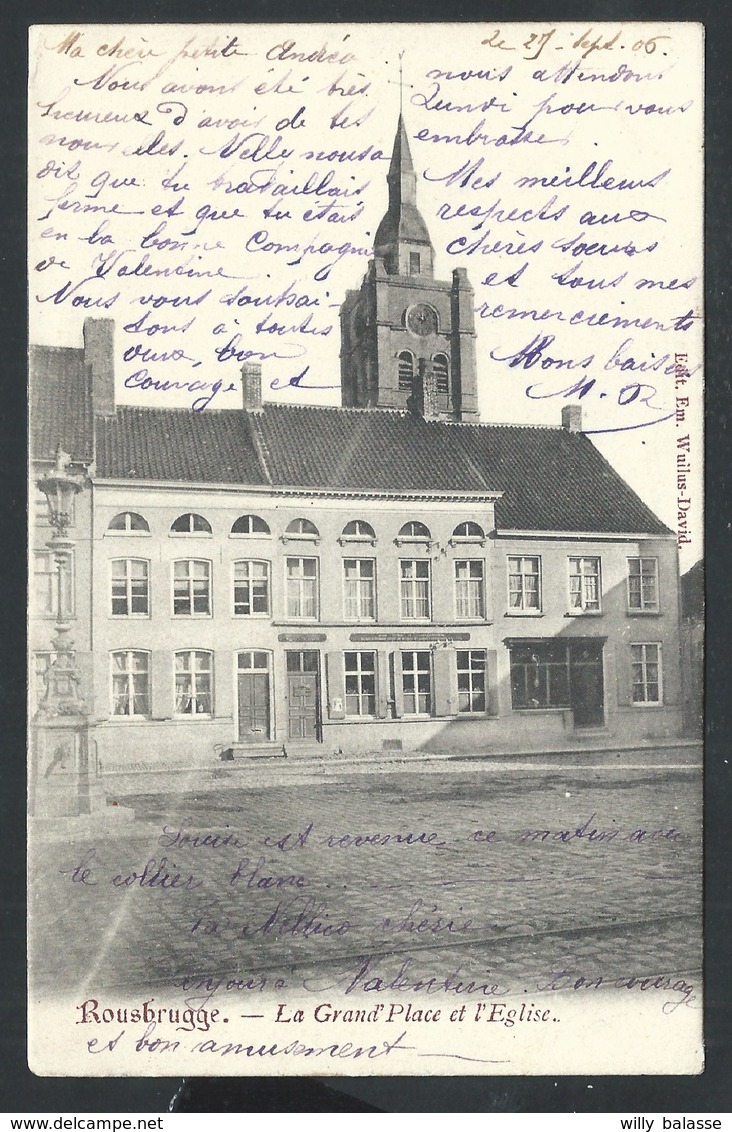 Ma chère petite Andréa
Le 27 Sept. 06.
Nous avons été très
heureux d'avoir de tes
nouvelles. Nelly nous a
dit que tu travaillais
ferme et que tu étais
en la bonne Compagnie
de Valentine.
Nous vous souhai-
tons à toutes
deux, bon
Courage et
nous attendons
Lundi pour vous
embrasser.
Mes meilleurs
respects aux
chères Soeurs
et tous mes
remerciements
Bons baisers
M. R
Edit. Em. Wuilus-David.
Louise est revenue ce matin avec
le collier blanc..
Ta Nellico chérie
Bonjour à Valentine. Bon courage
Rousbrugge. — La Grand'Place et l'Eglise.
et bon amusement
willy balasse